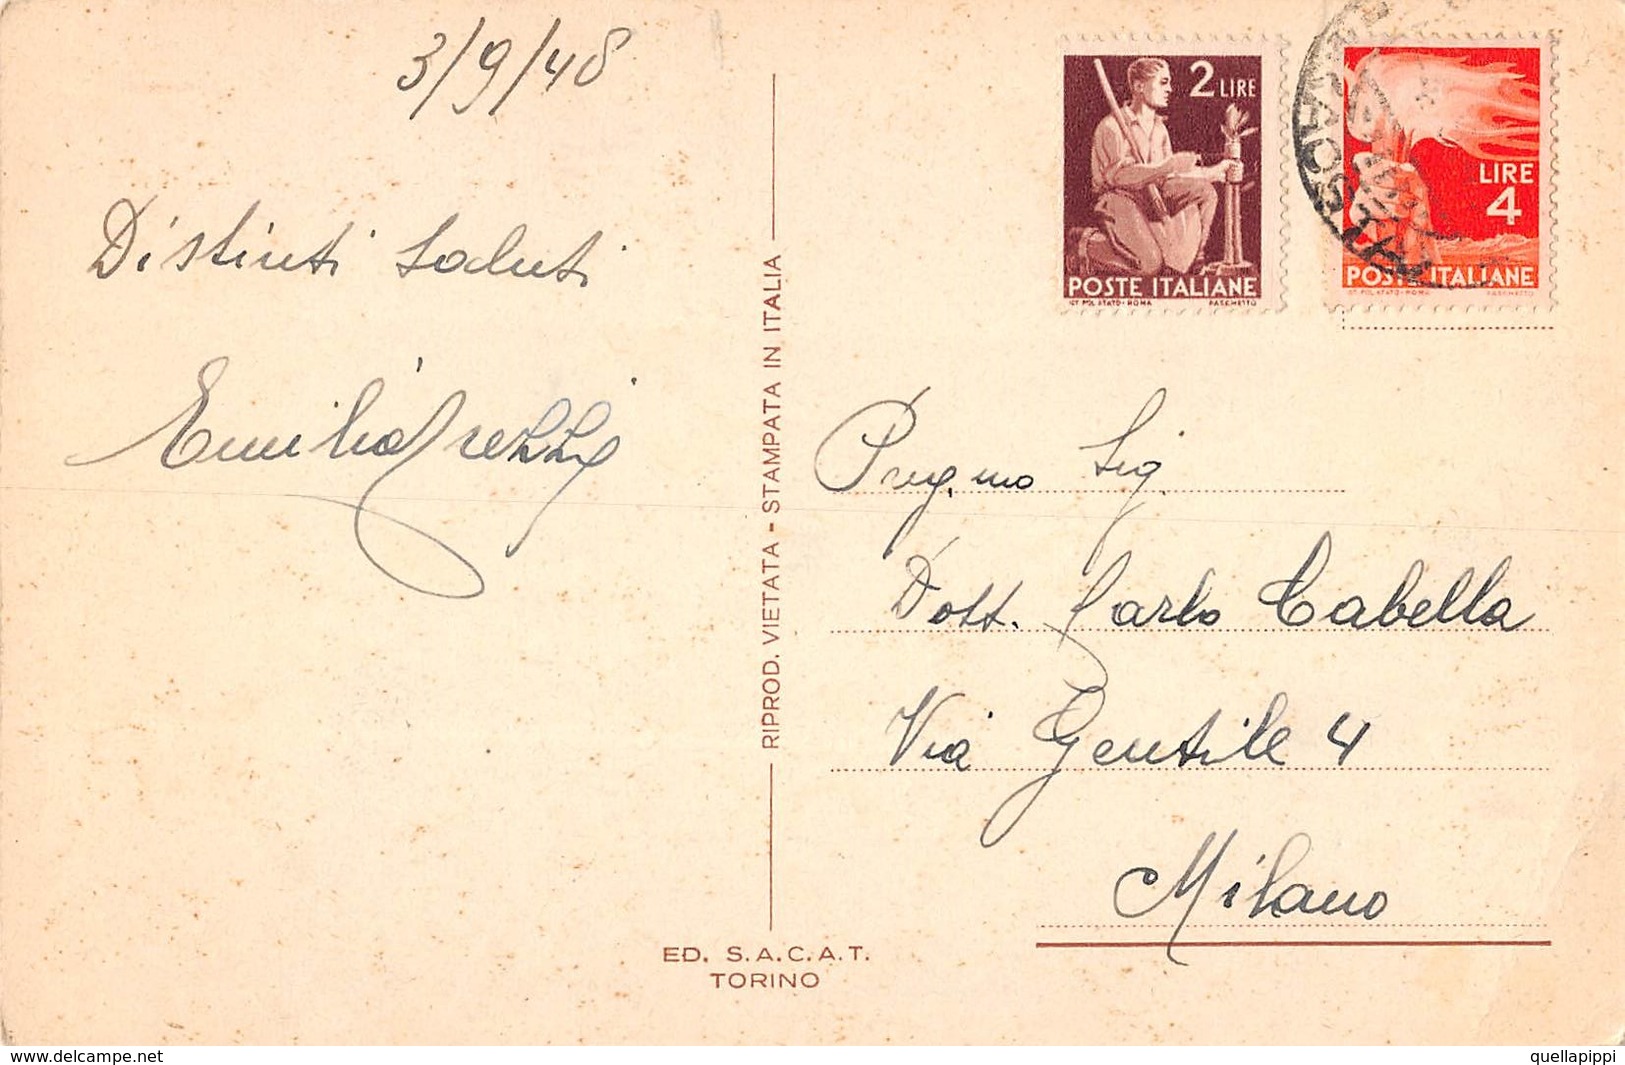 3/9/48
Distinti saluti
Emilio
RIPROD. VIETATA - STAMPATA IN ITALIA
ED. S.A.C.A.T.
TORINO
2 LIRE
POSTE ITALIANE
IST. POL. STATO - ROMA PASCHETTO
LIRE
4
POSTE ITALIANE
IST. POL. STATO - ROMA PASCHETTO
POSTA
Preg.mo Sig.
Dott. Carlo Cabella
Via Gentile 4
Milano
www.delcampe.net
quellapippi